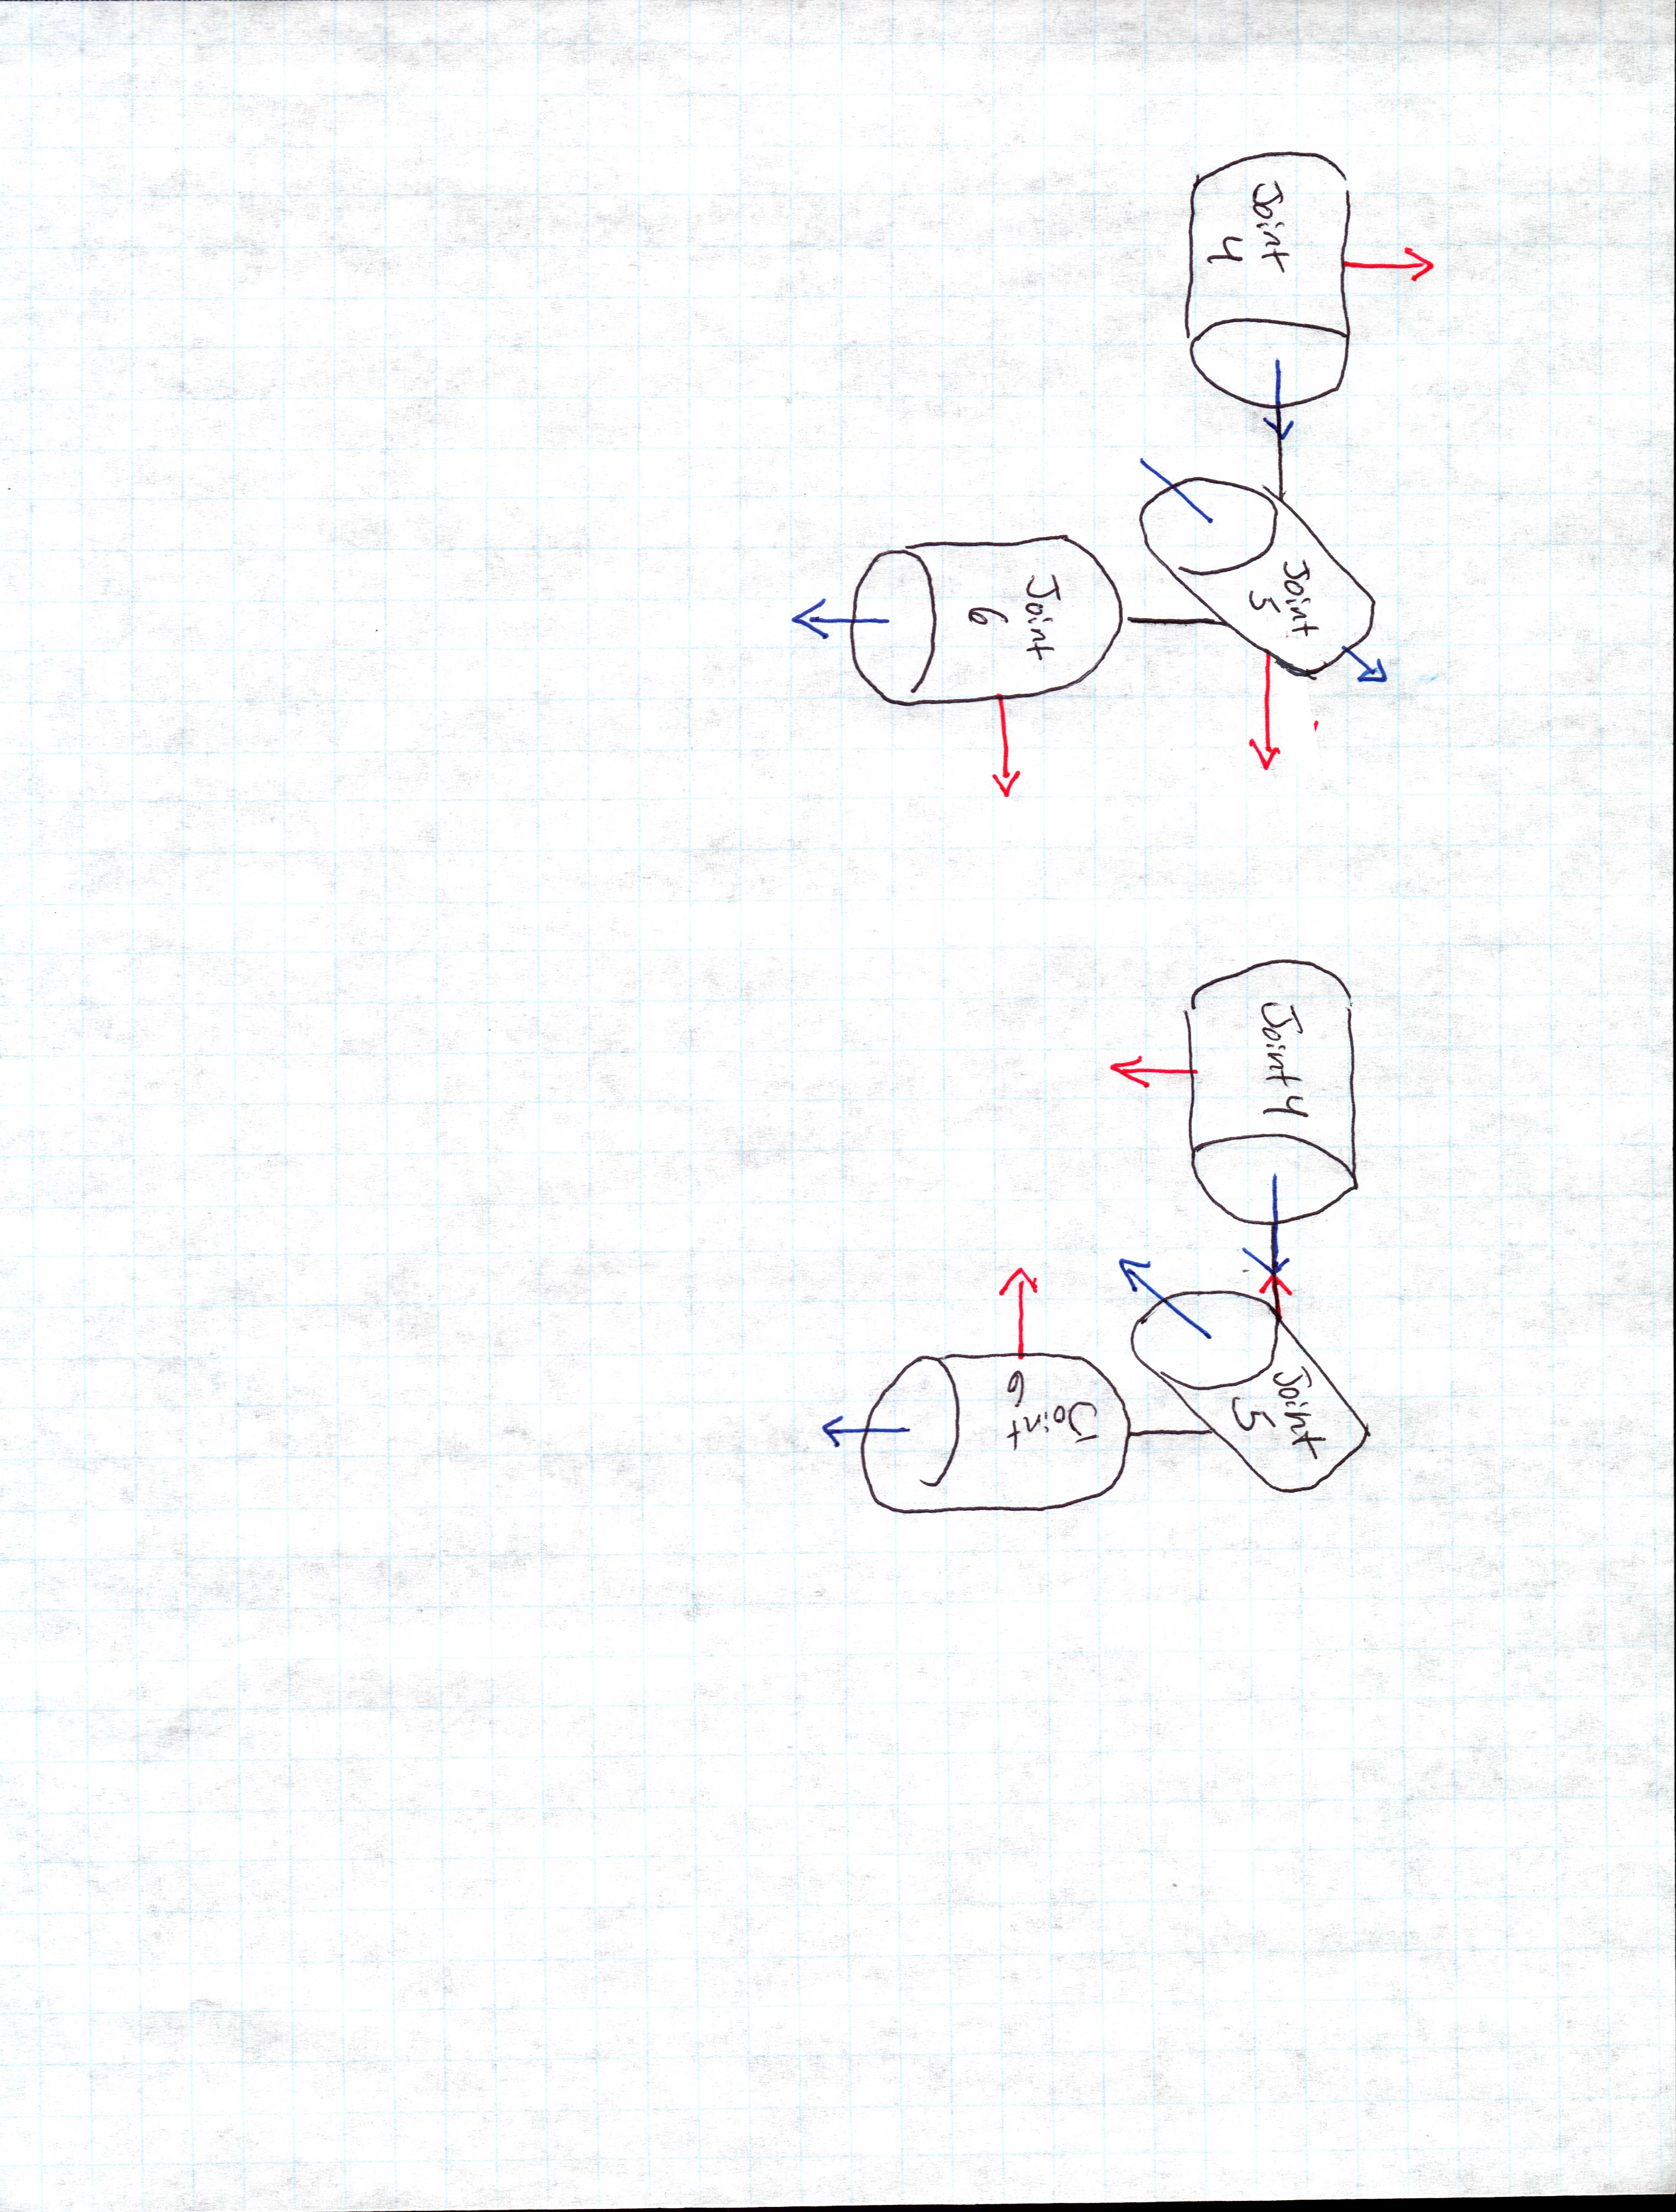 Joint
4
Joint
5
Joint
6
Joint 4
Joint
5
Joint
6